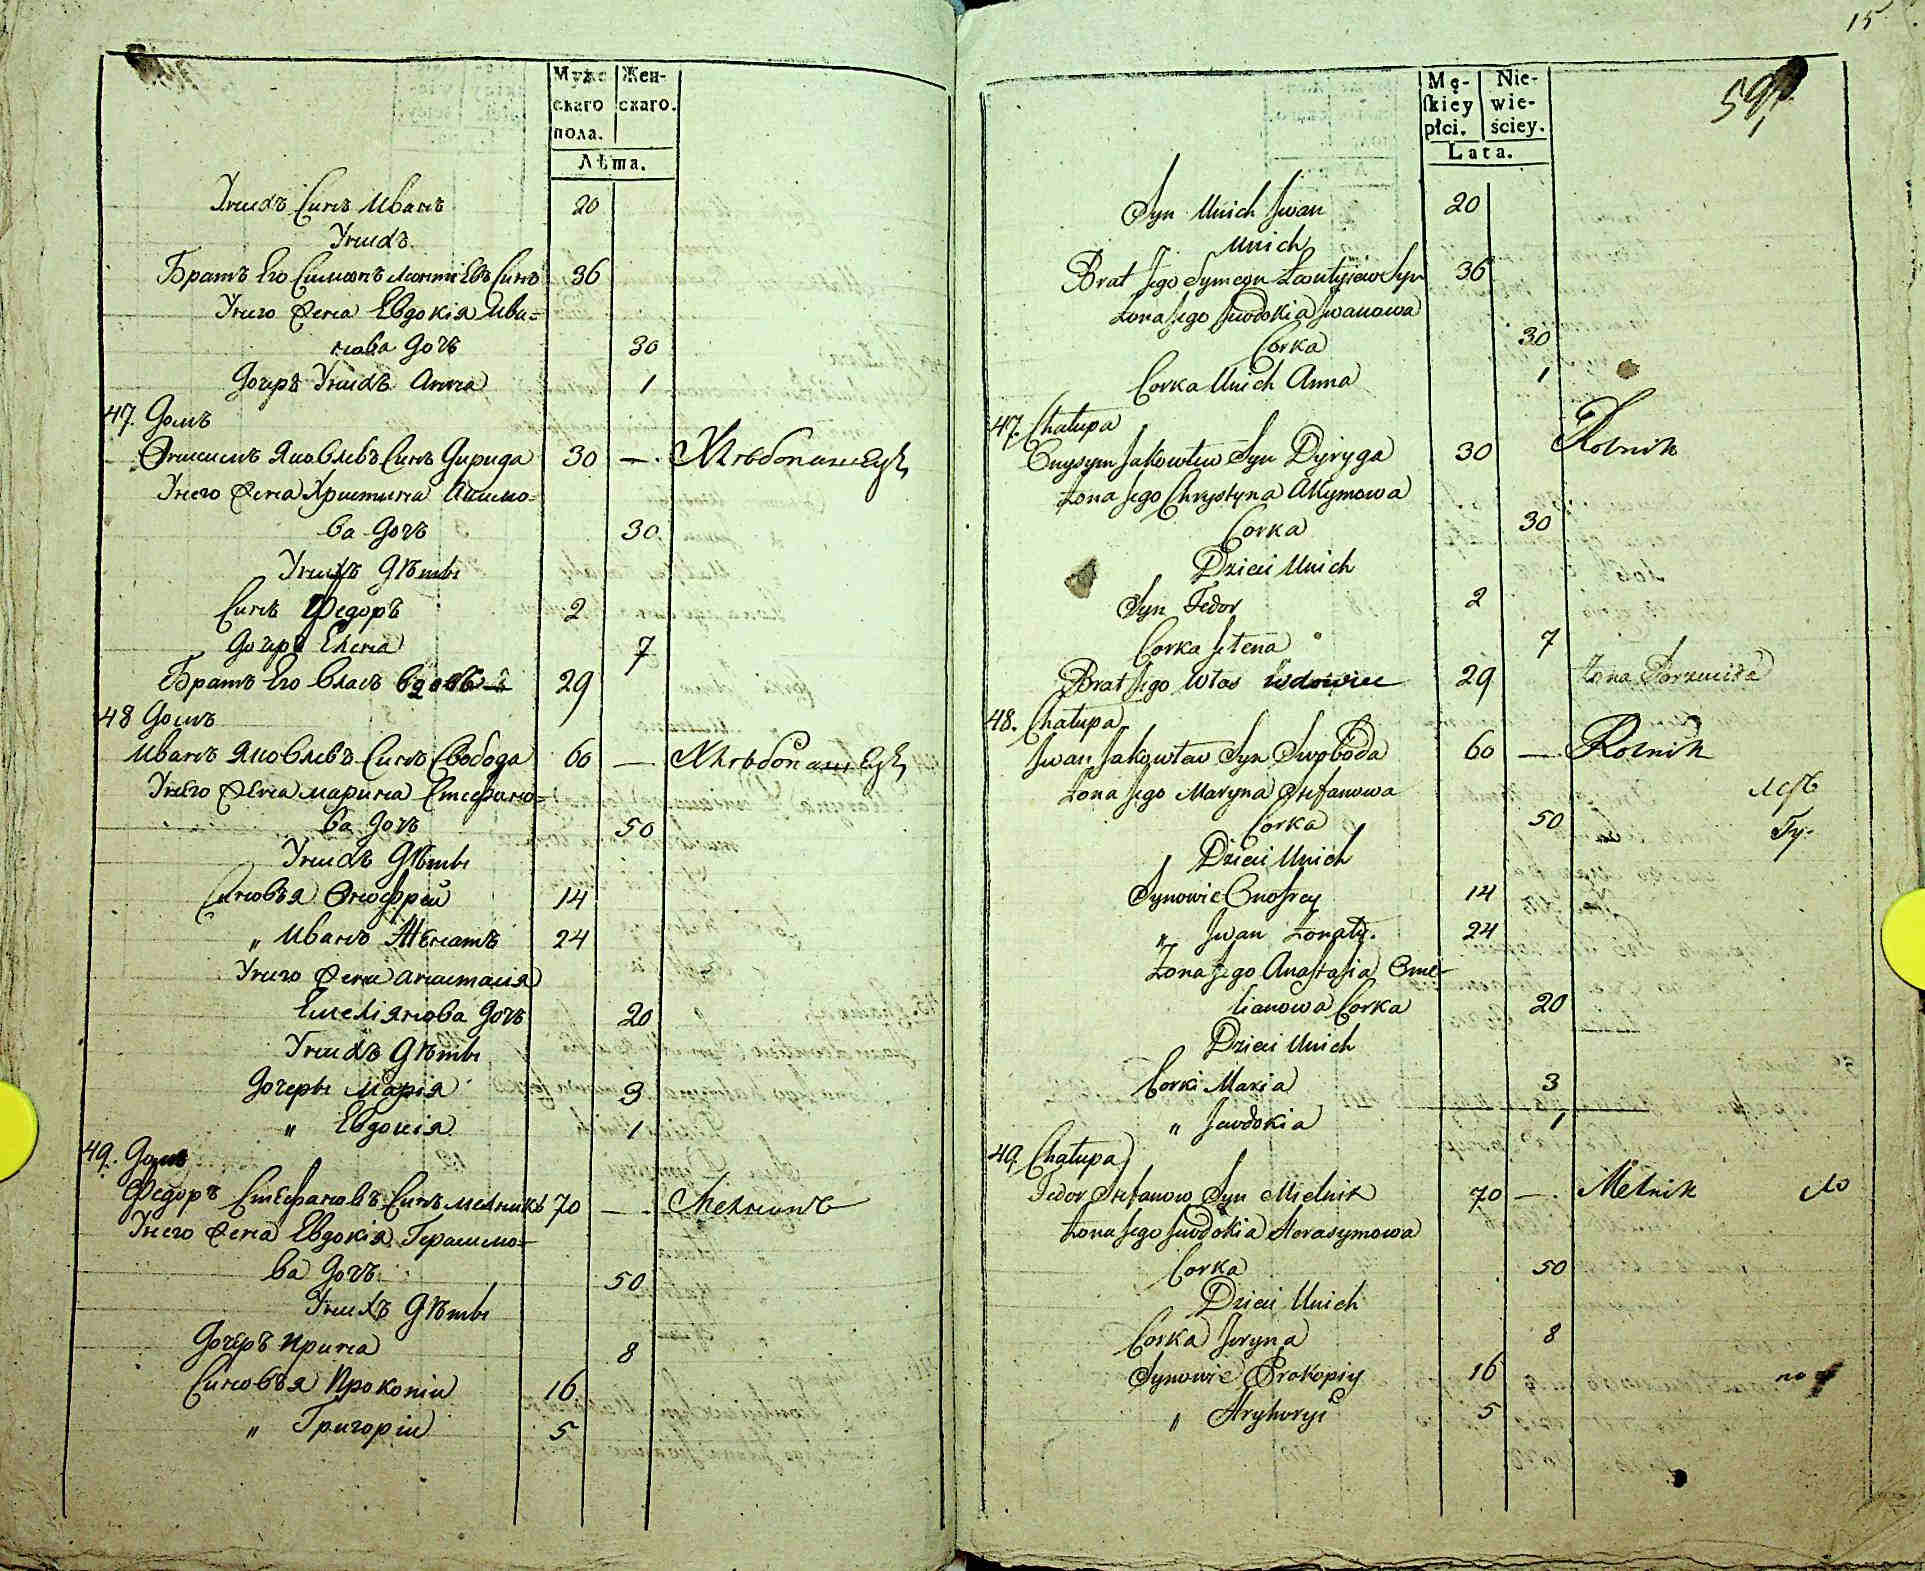 Муже
скаго
пола.
Жен-
скаго.
Лѣта.
Унихъ Синъ Иванъ 20
Унихъ
Братъ Его Симіонъ Леонтіевъ Синъ 36
Унего Жена Евдокія Ива=
нова Дочь 30
Дочеръ Унихъ Анна 1
47. Домъ
Онисимъ Яковлевъ Синъ Дирида 30 — Хлѣбопашецъ
Унего Жена Христина Акимо=
ва Дочъ 30
Унихъ Дѣты
Синъ Федоръ 2
Дочеръ Елена 7
Братъ Его Власъ вдовѣ 29
48 Домъ
Иванъ Яковлевъ Синъ Свобода 60 — Хлѣбопашецъ
Унего Жена Марина Стефано=
ва Дочъ 50
Унихъ Дѣты
Синовъя Онофрей 14
„ Иванъ Женатъ 24
Унего Жена Анастасия
Емеліянова Дочъ 20
Унихъ Дѣты
Дочеры Марія 3
„ Евдокія 1
49. Домъ
Федоръ Стефановъ Синъ Мелникъ 70 — Мелникъ
Унего Жена Евдокія Герасимо=
ва Дочъ 50
Унихъ Дѣты
Дочеръ Ирина 8
Синовъя Прокопій 16
„ Григорій 5
15
59
Mę-
skiey
płci.
Nie-
wie-
ściey.
Lata.
Syn Unich Jwan 20
Unich
Brat Jego Symeon Leontyiew Syn 36
Żona Jego Jewdokia Jwanowa
Corka 30
Corka Unich Anna 1
47. Chałupa
Onysym Jakowlew Syn Dyryga 30 Rolnik
Żona Jego Chrystyna Akymowa
Corka 30
Dzieci Unich
Syn Fedor 2
Corka Jelena 7
Brat Jego Własz wdowiec 29 Żona Porzuciła
48. Chałupa
Jwan Jakowlew Syn Swoboda 60 — Rolnik
Żona Jego Maryna Stefanowa
Corka 50
Dzieci Unich
Synowie Onofrey 14
„ Jwan Żonaty. 24
Żona Jego Anastasia Eme-
lianowa Corka 20
Dzieci Unich
Corki Maria 3
„ Jewdokia 1
49. Chałupa
Fedor Stefanow Syn Mielnik 70 — Melnik
Żona Jego Jewdokia Herasymowa
Corka 50
Dzieci Unich
Corka Jeryna 8
Synowie Prokopiy 16
„ Hryhoryi 5